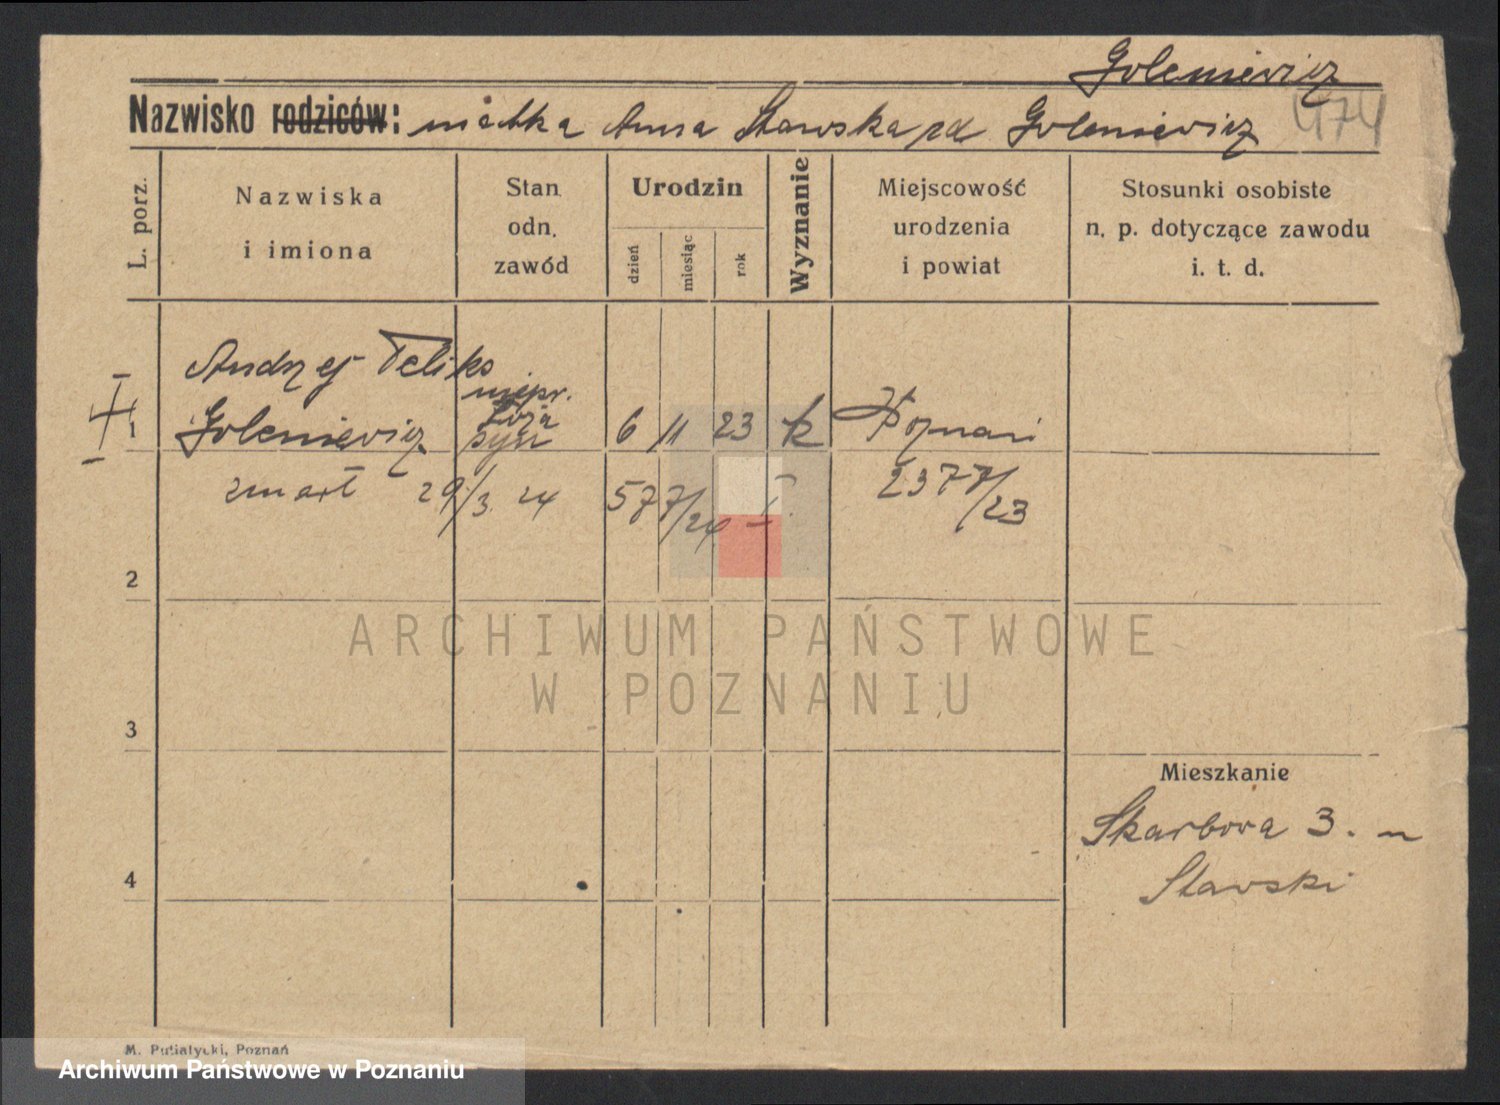 Goleniewicz
474
Nazwisko rodziców: matka Anna Stawska zd Goleniewicz
L. porz.
Nazwiska
i imiona
Stan
odn.
zawód
Urodzin
dzień
miesiąc
rok
Wyznanie
Miejscowość
urodzenia
i powiat
Stosunki osobiste
n. p. dotyczące zawodu
i. t. d.
Andrzej Feliks
1 Goleniewicz
syn 6 11 23 k Poznań
zmarł 29/3. 24 577/24 I. 2377/23
2
3
4
Mieszkanie
Skarbowa 3.
Stawski
M. Putiatycki, Poznań
ARCHIWUM PAŃSTWOWE
W POZNANIU
Archiwum Państwowe w Poznaniu